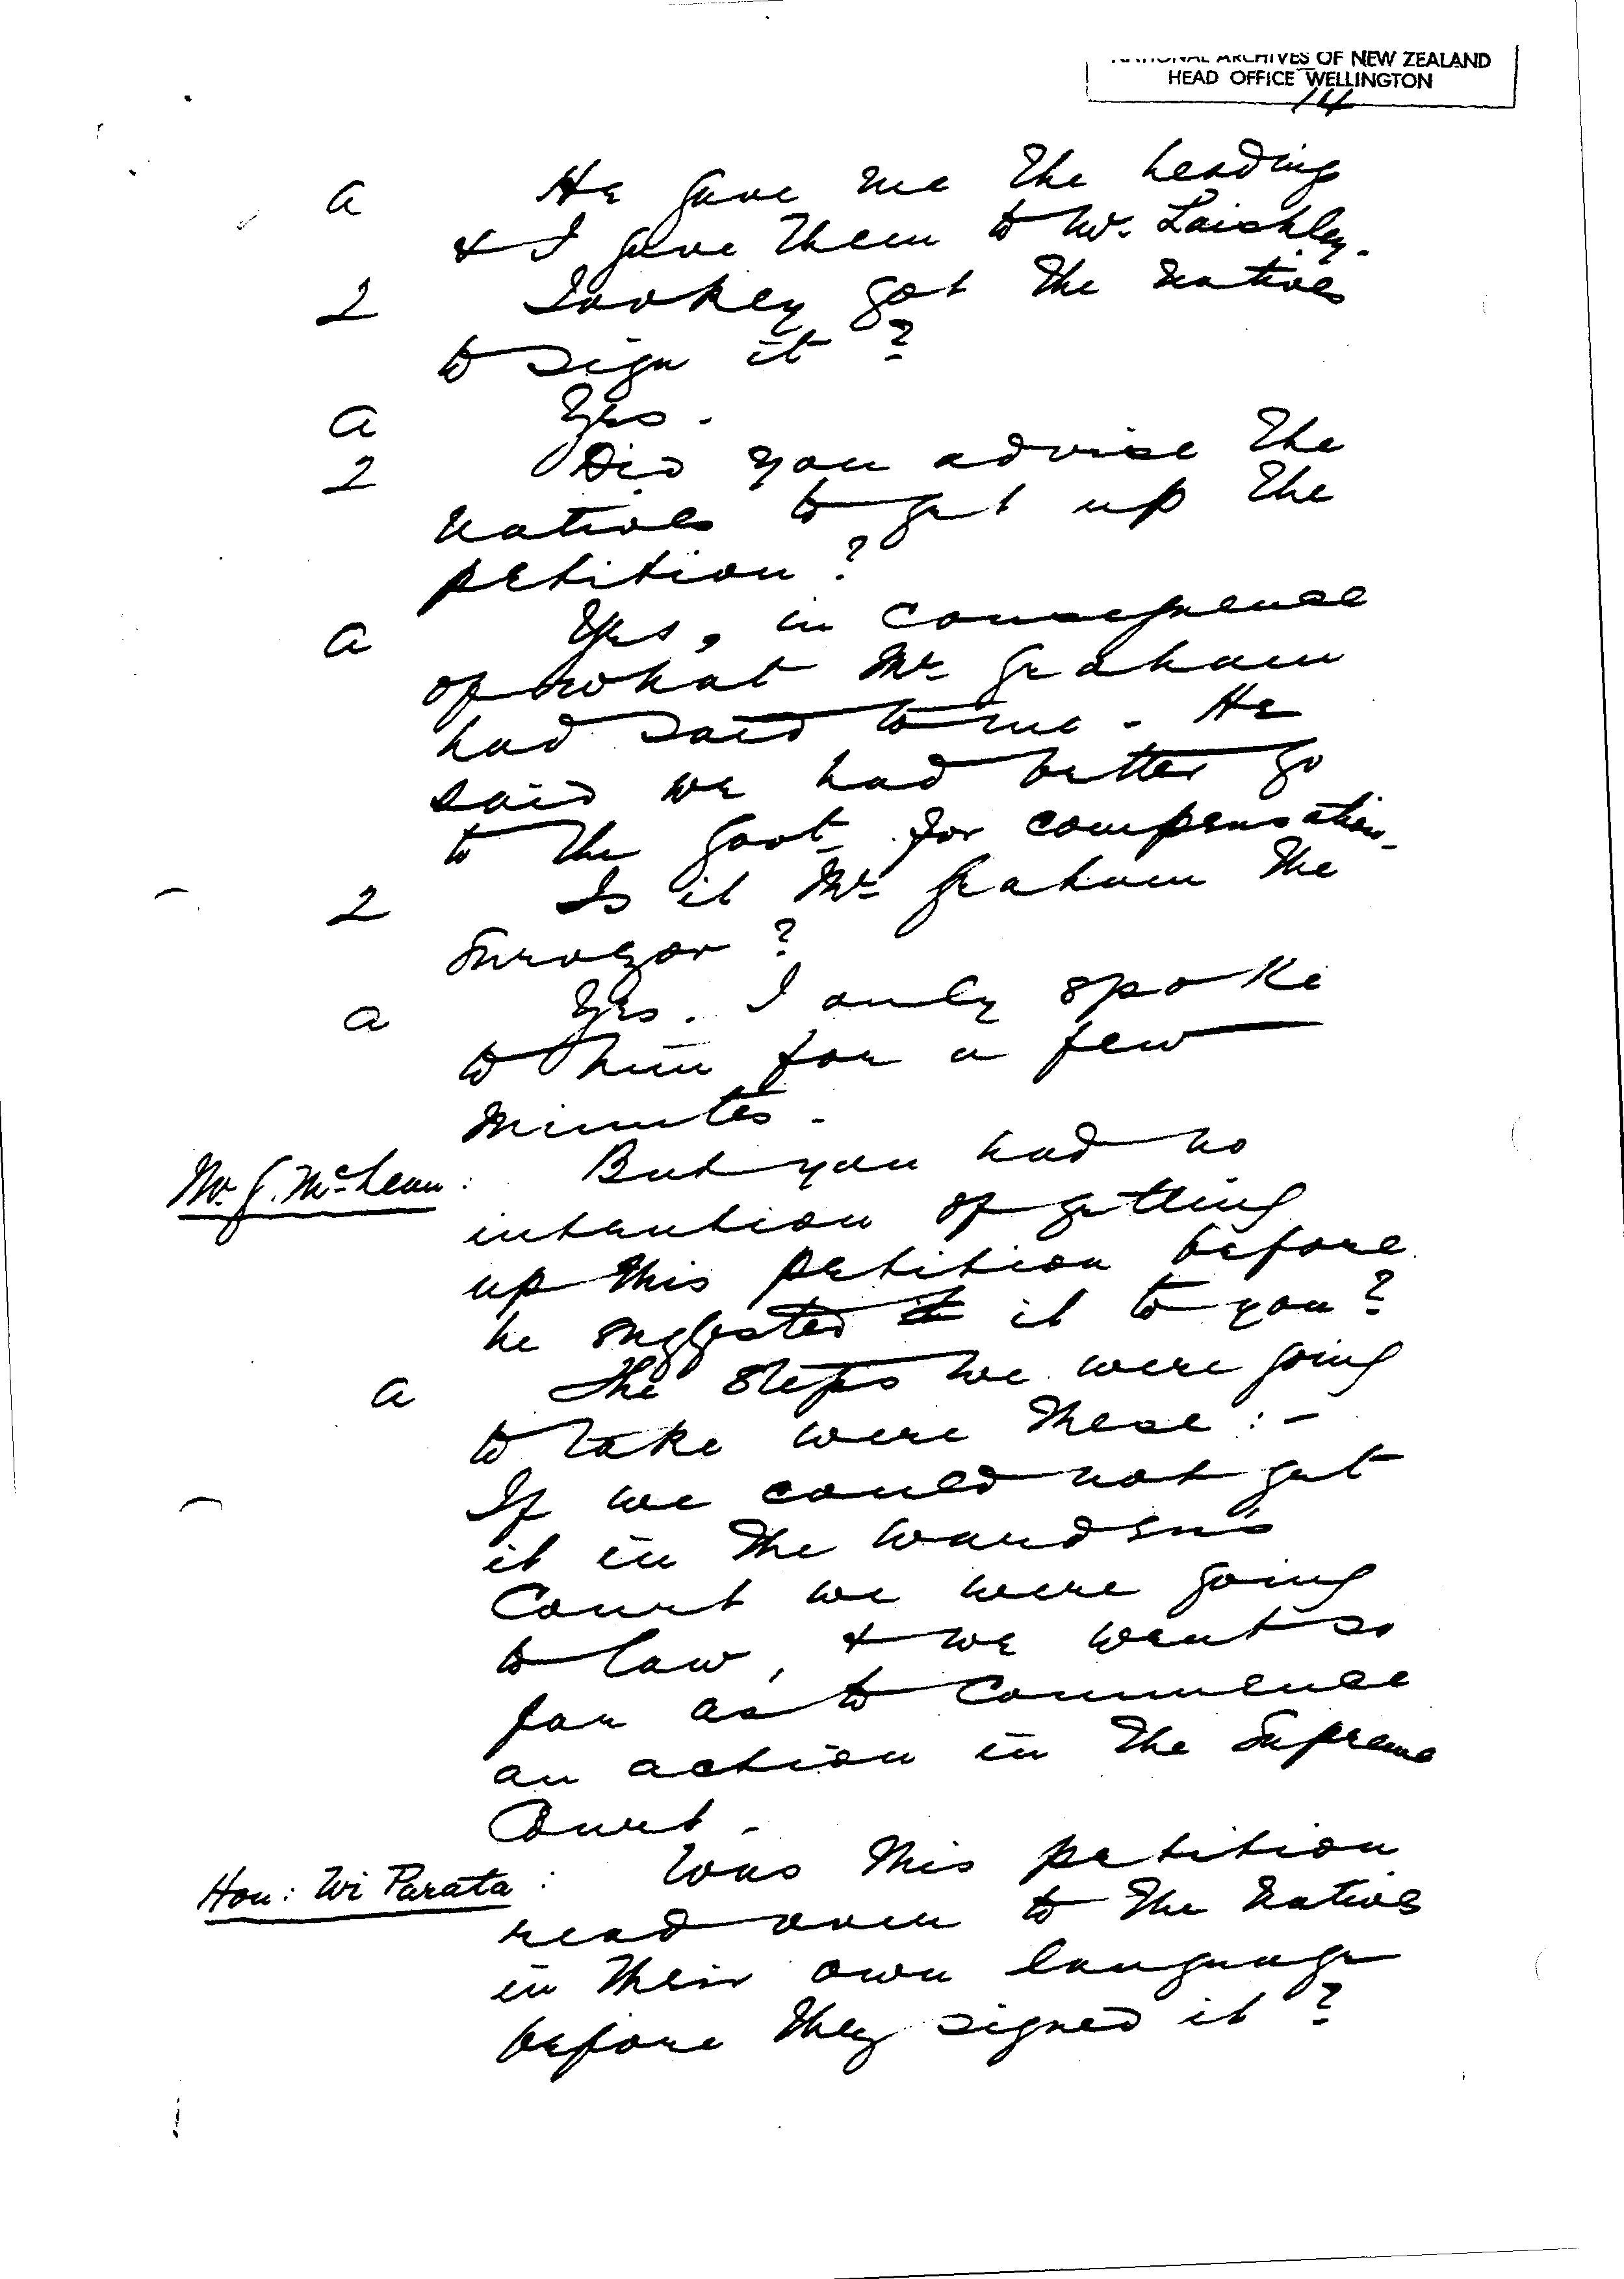 NATIONAL ARCHIVES OF NEW ZEALAND
HEAD OFFICE WELLINGTON
14
A He gave me the heading
& I gave them to Mr. Laishley.
Q Tookey got the natives
to sign it?
A Yes.
Q Did you advise the
natives to get up the
petition?
A Yes, in consequence
of what Mr Graham
had said to me. He
said we had better go
to the Govt for compensation.
Q Is it Mr Graham the
Surveyor?
A Yes. I only spoke
to him for a few
minutes.
Mr. G. McLean: But you had no
intention of getting
up this petition before
he suggested it to you?
A The steps we were going
to take were these:-
If we could not get
it in the Warden's
Court we were going
to law, & we went so
far as to commence
an action in the Supreme
Court.
Hon: Wi Parata: Was this petition
read over to the Natives
in their own language
before they signed it?